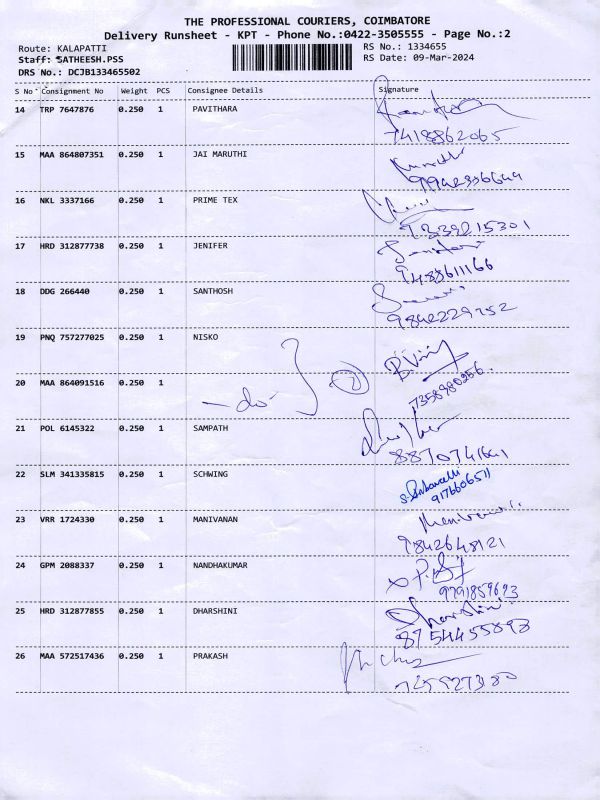 THE PROFESSIONAL COURIERS, COIMBATORE
Delivery Runsheet - KPT - Phone No.:0422-3505555 - Page No.:2
Route: KALAPATTI
RS No.: 1334655
Staff: SATHEESH.PSS
RS Date: 09-Mar-2024
DRS No.: DCJB133465502
S No Consignment No Weight PCS Consignee Details Signature
14 TRP 7647876 0.250 1 PAVITHARA
7418862065
15 MAA 864807351 0.250 1 JAI MARUTHI
16 NKL 3337166 0.250 1 PRIME TEX
9339215301
17 HRD 312877738 0.250 1 JENIFER
9488611166
18 DDG 266440 0.250 1 SANTHOSH
9842229752
19 PNQ 757277025 0.250 1 NISKO
20 MAA 864091516 0.250 1
-do- 2
7358980256
21 POL 6145322 0.250 1 SAMPATH
22 SLM 341335815 0.250 1 SCHWING
9176606511
23 VRR 1724330 0.250 1 MANIVANAN
9842648121
24 GPM 2088337 0.250 1 NANDHAKUMAR
9791859693
25 HRD 312877855 0.250 1 DHARSHINI
Dharshini
8754455893
26 MAA 572517436 0.250 1 PRAKASH